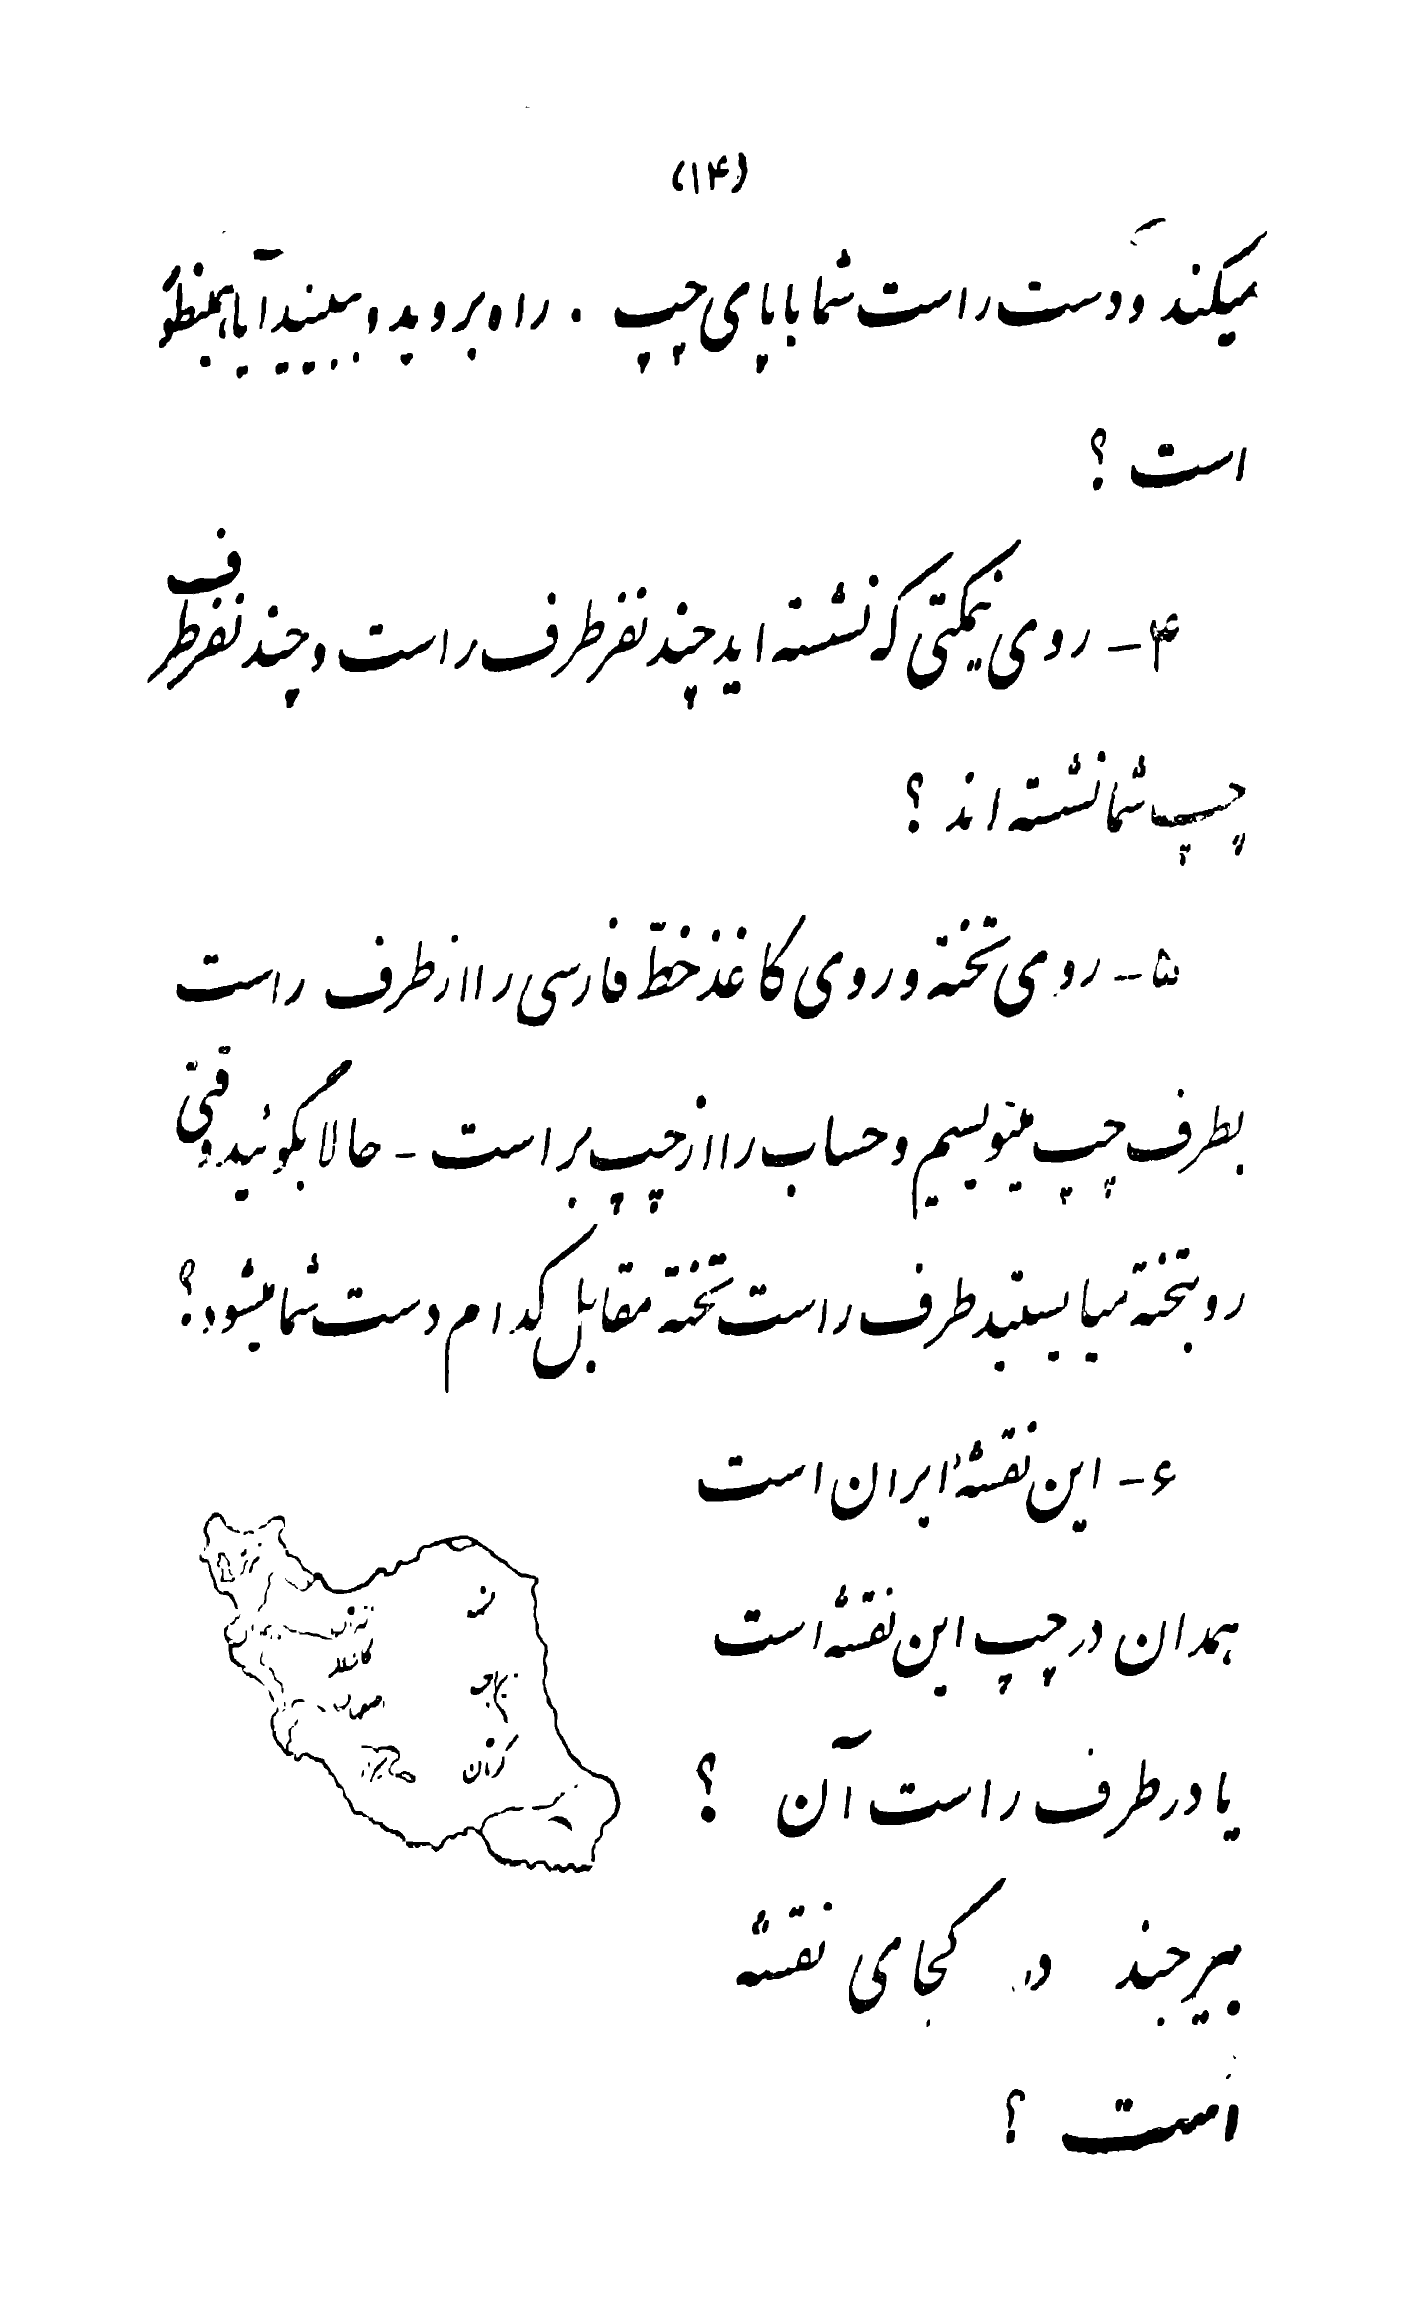 (۱۴)
میکند و دست راست شما با پای چپ . راه بروید و ببینید آیا همینطور
است ؟
۴ - روی نیمکتی که نشسته اید چند نفر طرف راست و چند نفر طرف
چپ شما نشسته اند ؟
۵ - روی تخته و روی کاغذ خطّ فارسی را از طرف راست
بطرف چپ مینویسیم و حساب را از چپ براست - حالا بگوئید وقتی
رو بتخته میایستید طرف راست تخته مقابل کدام دست شما میشود ؟
۶ - این نقشهٔ ایران است
همدان در چپ این نقشه است
یا در طرف راست آن ؟
بیرجند در کجای نقشه
است ؟
تهران
کاشان
کرمان